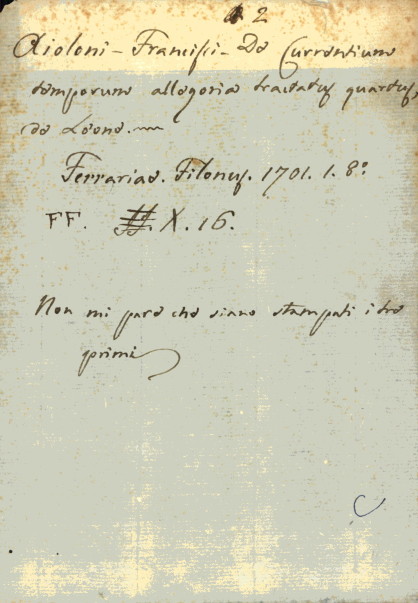 2
Aioloni - Francisci - De Currentium
temporum allegoria tractatus quartus,
de Leone.
Ferrariae. Filonus. 1701. 1. 8º
FF. X. 16.
Non mi pare che siano stampati i tre
primi